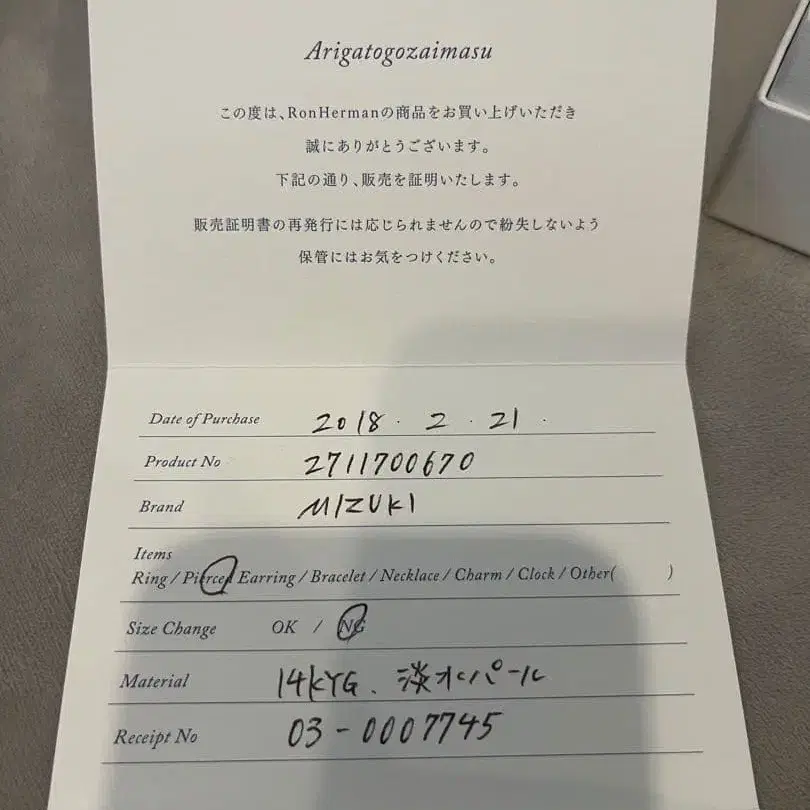 Arigatogozaimasu
この度は、RonHermanの商品をお買い上げいただき
誠にありがとうございます。
下記の通り、販売を証明いたします。
販売証明書の再発行には応じられませんので紛失しないよう
保管にはお気をつけください。
Date of Purchase 2018. 2. 21.
Product No 2711700670
Brand MIZUKI
Items
Ring / Pierced Earring / Bracelet / Necklace / Charm / Clock / Other( )
Size Change OK / NG
Material 14KYG、淡水パール
Receipt No 03-0007745